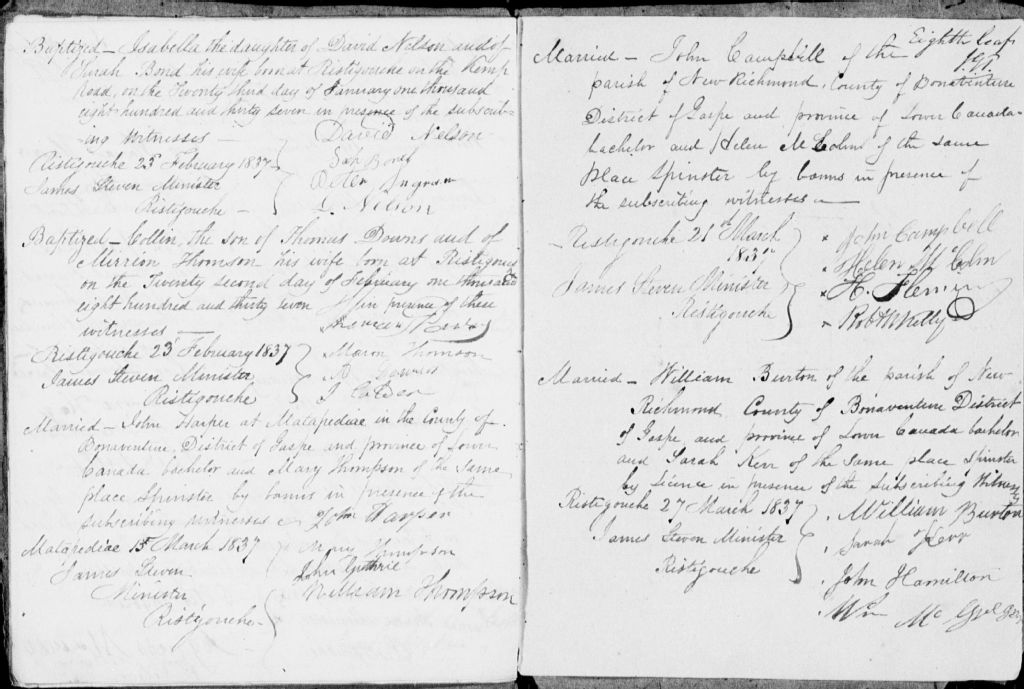 Baptized - Isabella the daughter of David Nelson and of
Sarah Bond his wife born at Ristigouche on the Kemp
Road, on the Twenty third day of January one thousand
eight hundred and thirty seven in presence of the subscrib-
ing witnesses - David Nelson
Ristigouche 23d February 1837
James Steven Minister Peter Ingram
Ristigouche - D. Nelson
Baptized - Collin, the son of Thomas Downs and of
Mirrion Thomson his wife born at Ristigouche
on the Twenty second day of February one thousand
eight hundred and thirty seven in presence of these
witnesses -
Ristigouche 23d February 1837 Thomson
James Steven Minister
Ristigouche
Married - John Harper at Matapediae in the County of
Bonaventure, District of Gaspe and province of Lower
Canada bachelor and Mary Thompson of the same
place Spinster by banns in presence of the
subscribing witnesses John Harper
Matapediae 15th March 1837 Mary Thompson
James Steven John Guthrie
Minister William Thompson
Ristigouche -
Eighth leaf
Married - John Campbell of the
parish of New Richmond, County of Bonaventure
District of Gaspe and province of Lower Canada
bachelor and Helen McColm of the same
place Spinster by banns in presence of
the subscribing witnesses -
- Ristigouche 21st March × John Campbell
1837 × Helen McColm
James Steven Minister × H. Fleming
Ristigouche × Robt McKelly
Married - William Burton of the parish of New
Richmond County of Bonaventure District
of Gaspe, and province of Lower Canada bachelor
and Sarah Kerr of the same place spinster
by licence in presence of the subscribing witnesses
Ristigouche 27 March 1837 William Burton
James Steven Minister Sarah Kerr
Ristigouche John Hamilton
Wm McGregor